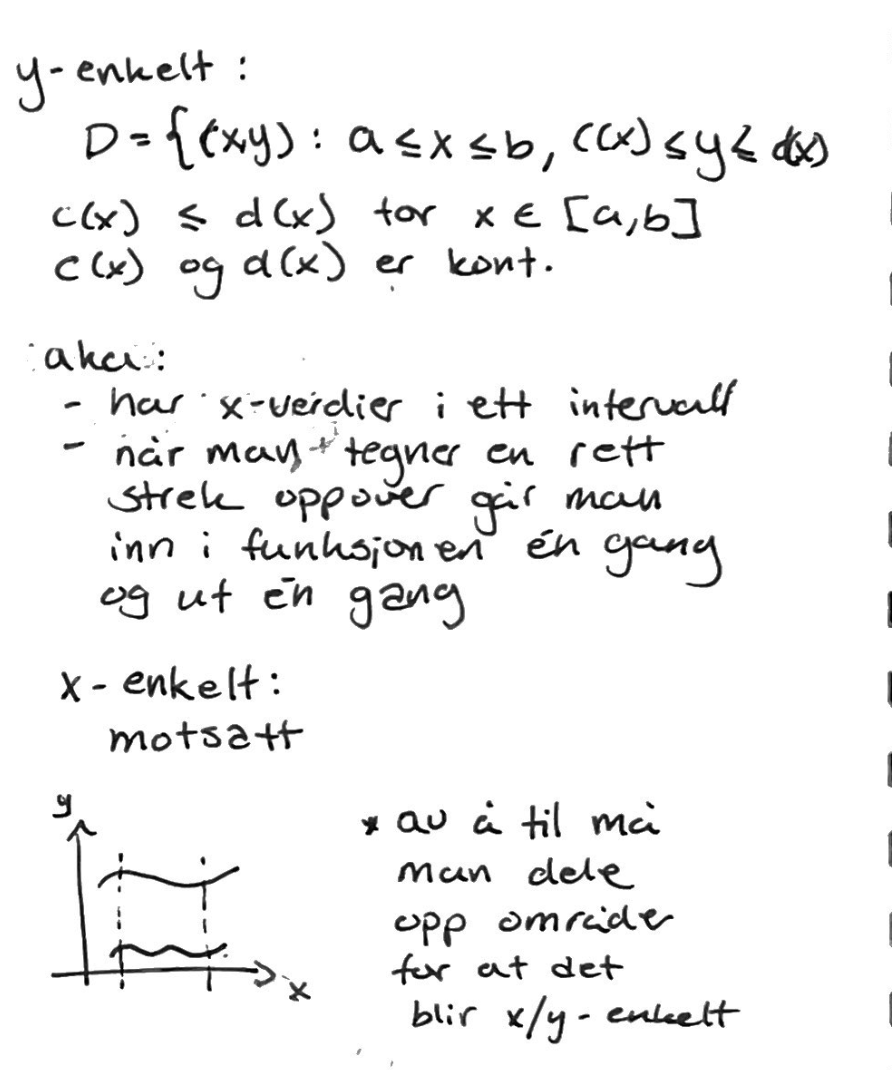 y-enkelt:
D={(x,y): a≤x≤b, c(x)≤y≤d(x)
c(x) ≤ d(x) for x ∈ [a,b]
c(x) og d(x) er kont.
aka:
- har x-verdier i ett intervall
- når man tegner en rett
strek oppover går man
inn i funksjonen én gang
og ut én gang
x-enkelt:
motsatt
y
x
* av å til må
man dele
opp områder
for at det
blir x/y-enkelt